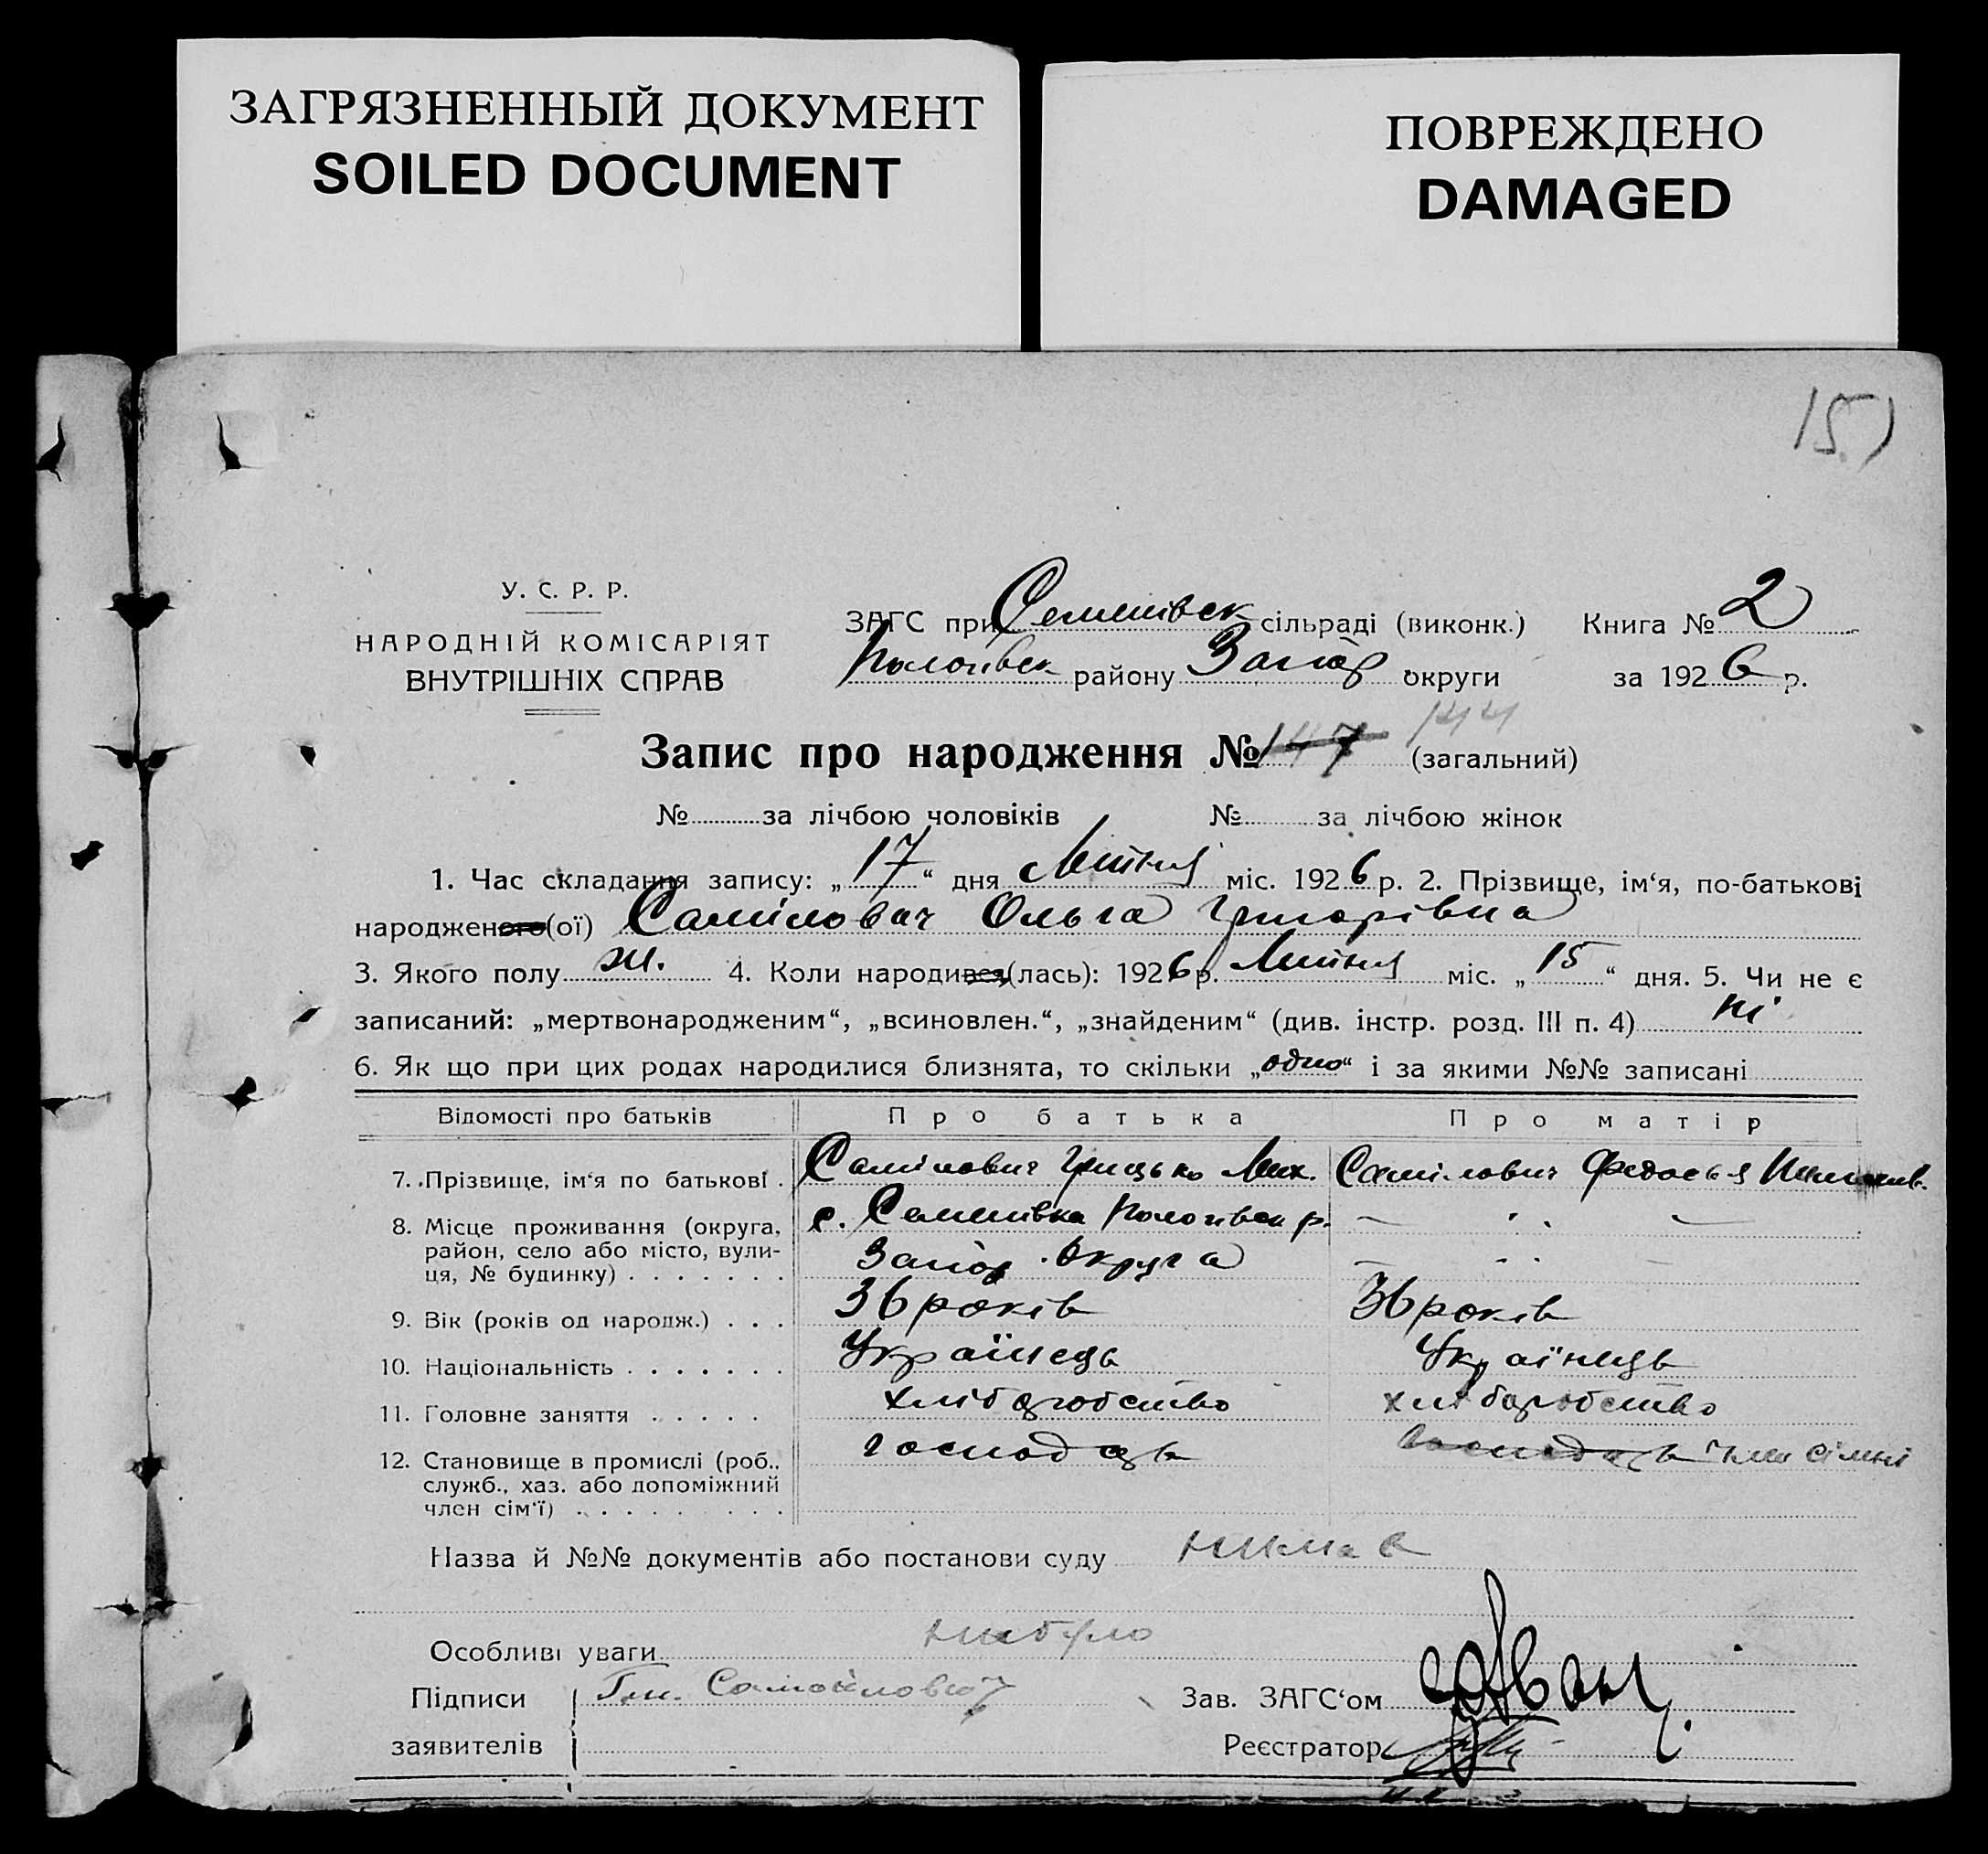 ЗАГРЯЗНЕННЫЙ ДОКУМЕНТ
SOILED DOCUMENT
ПОВРЕЖДЕНО
DAMAGED
У. С. Р. Р.
НАРОДНІЙ КОМІСАРІЯТ
ВНУТРІШНІХ СПРАВ
ЗАГС при Семенівск сільраді (виконк.) Книга № 2
Пологівск району Запор округи за 1926 р.
144
Запис про народження № 147 (загальний)
№ за лічбою чоловіків № за лічбою жінок
1. Час складання запису: „17“ дня Липня міс. 1926 р. 2. Прізвище, ім‘я, по-батькові
народженого(ої) Самілович Ольга Григорівна
3. Якого полу ж. 4. Коли народився(лась): 1926 р. Липня міс. „15“ дня. 5. Чи не є
записаний: „мертвонародженим“, „всиновлен.“, „знайденим“ (див. інстр. розд. III п. 4) ні
6. Як що при цих родах народилися близнята, то скільки „одно“ і за якими №№ записані
Відомості про батьків Про батька Про матір
7. Прізвище, ім‘я по батькові . Самілович Грицько Мих. Самілович Федосья
8. Місце проживання (округа, с. Семенівка Пологівск р.
район, село або місто, вули-
ця, № будинку) . . . . . . . Запор округа
9. Вік (років од народж.) . . . 36 років 36 років
10. Національність . . . . . . . Українець Українець
11. Головне заняття . . . . . хліборобство хліборобство
12. Становище в промислі (роб., господарь господарь член сімні
служб., хаз. або допоміжний
член сім‘ї) . . . . . . . . .
Назва й №№ документів або постанови суду нимає
Особливі уваги небуло
Підписи Гри. Самойлович Зав. ЗАГС‘ом
заявителів Реєстратор